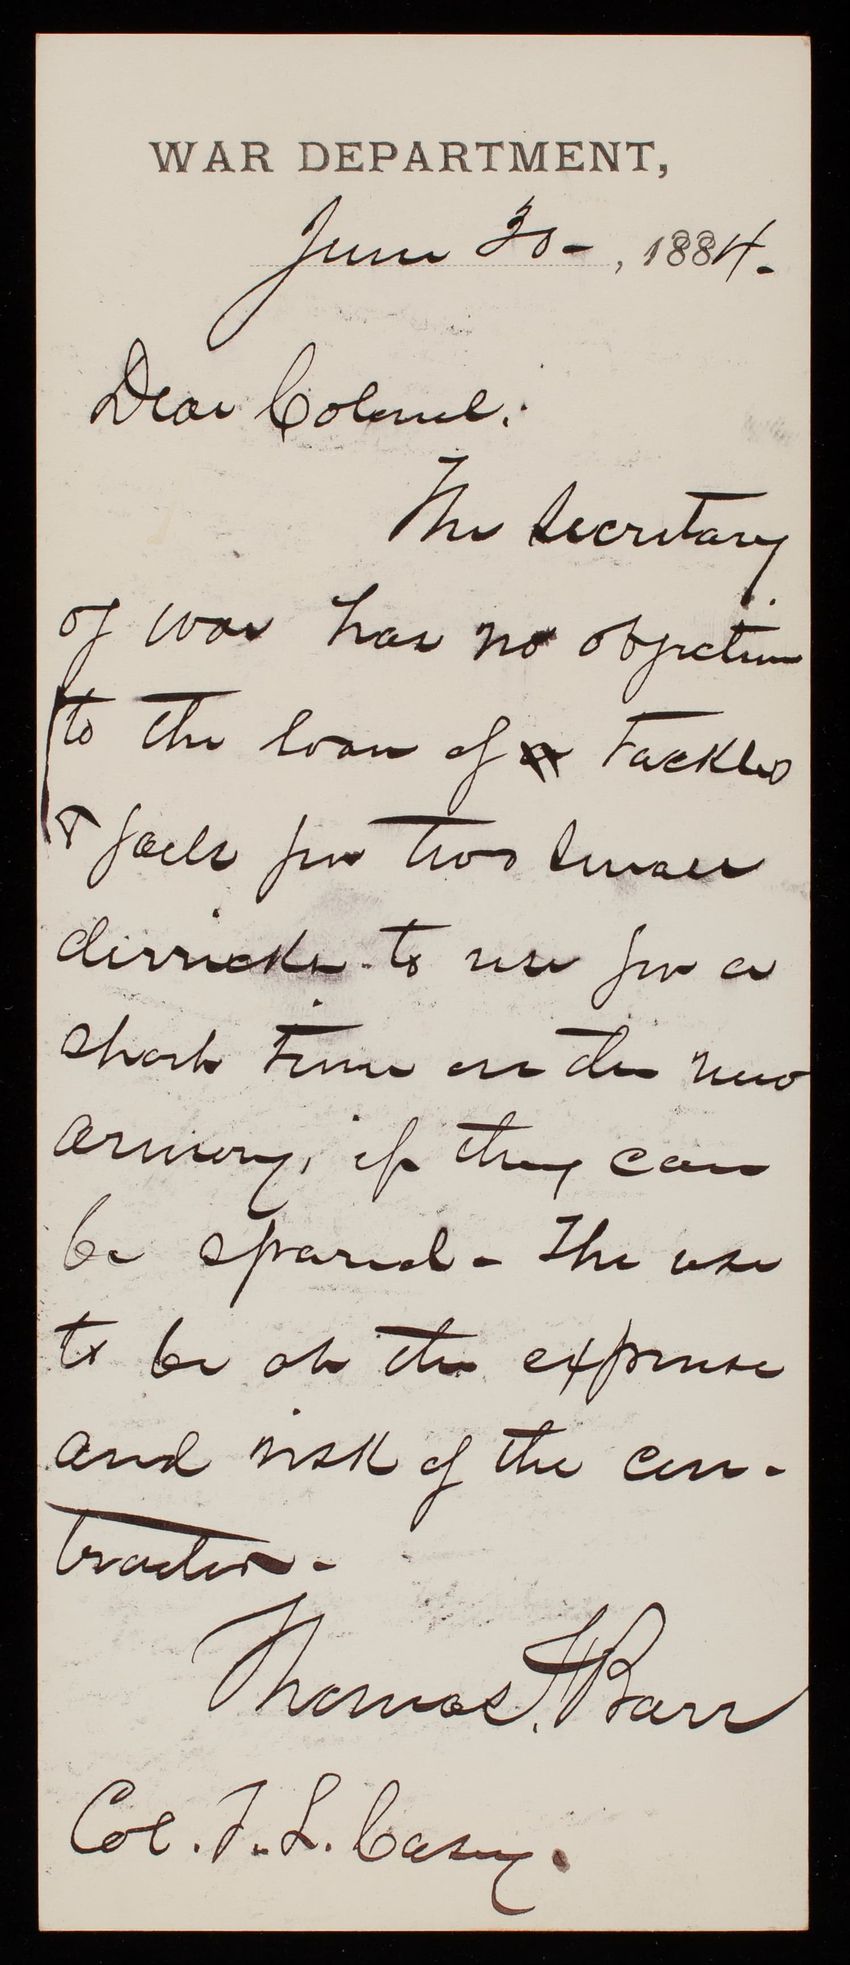 WAR DEPARTMENT,
June 30 - , 1884.
Dear Colonel:
The Secretary
of War has no objection
to the loan of tackles
& falls for two small
derricks to use for a
short time on the new
armory, if they can
be spared - The use
to be at the expense
and risk of the con-
tractor -
Thomas F Barr
Col. T. L. Casey.